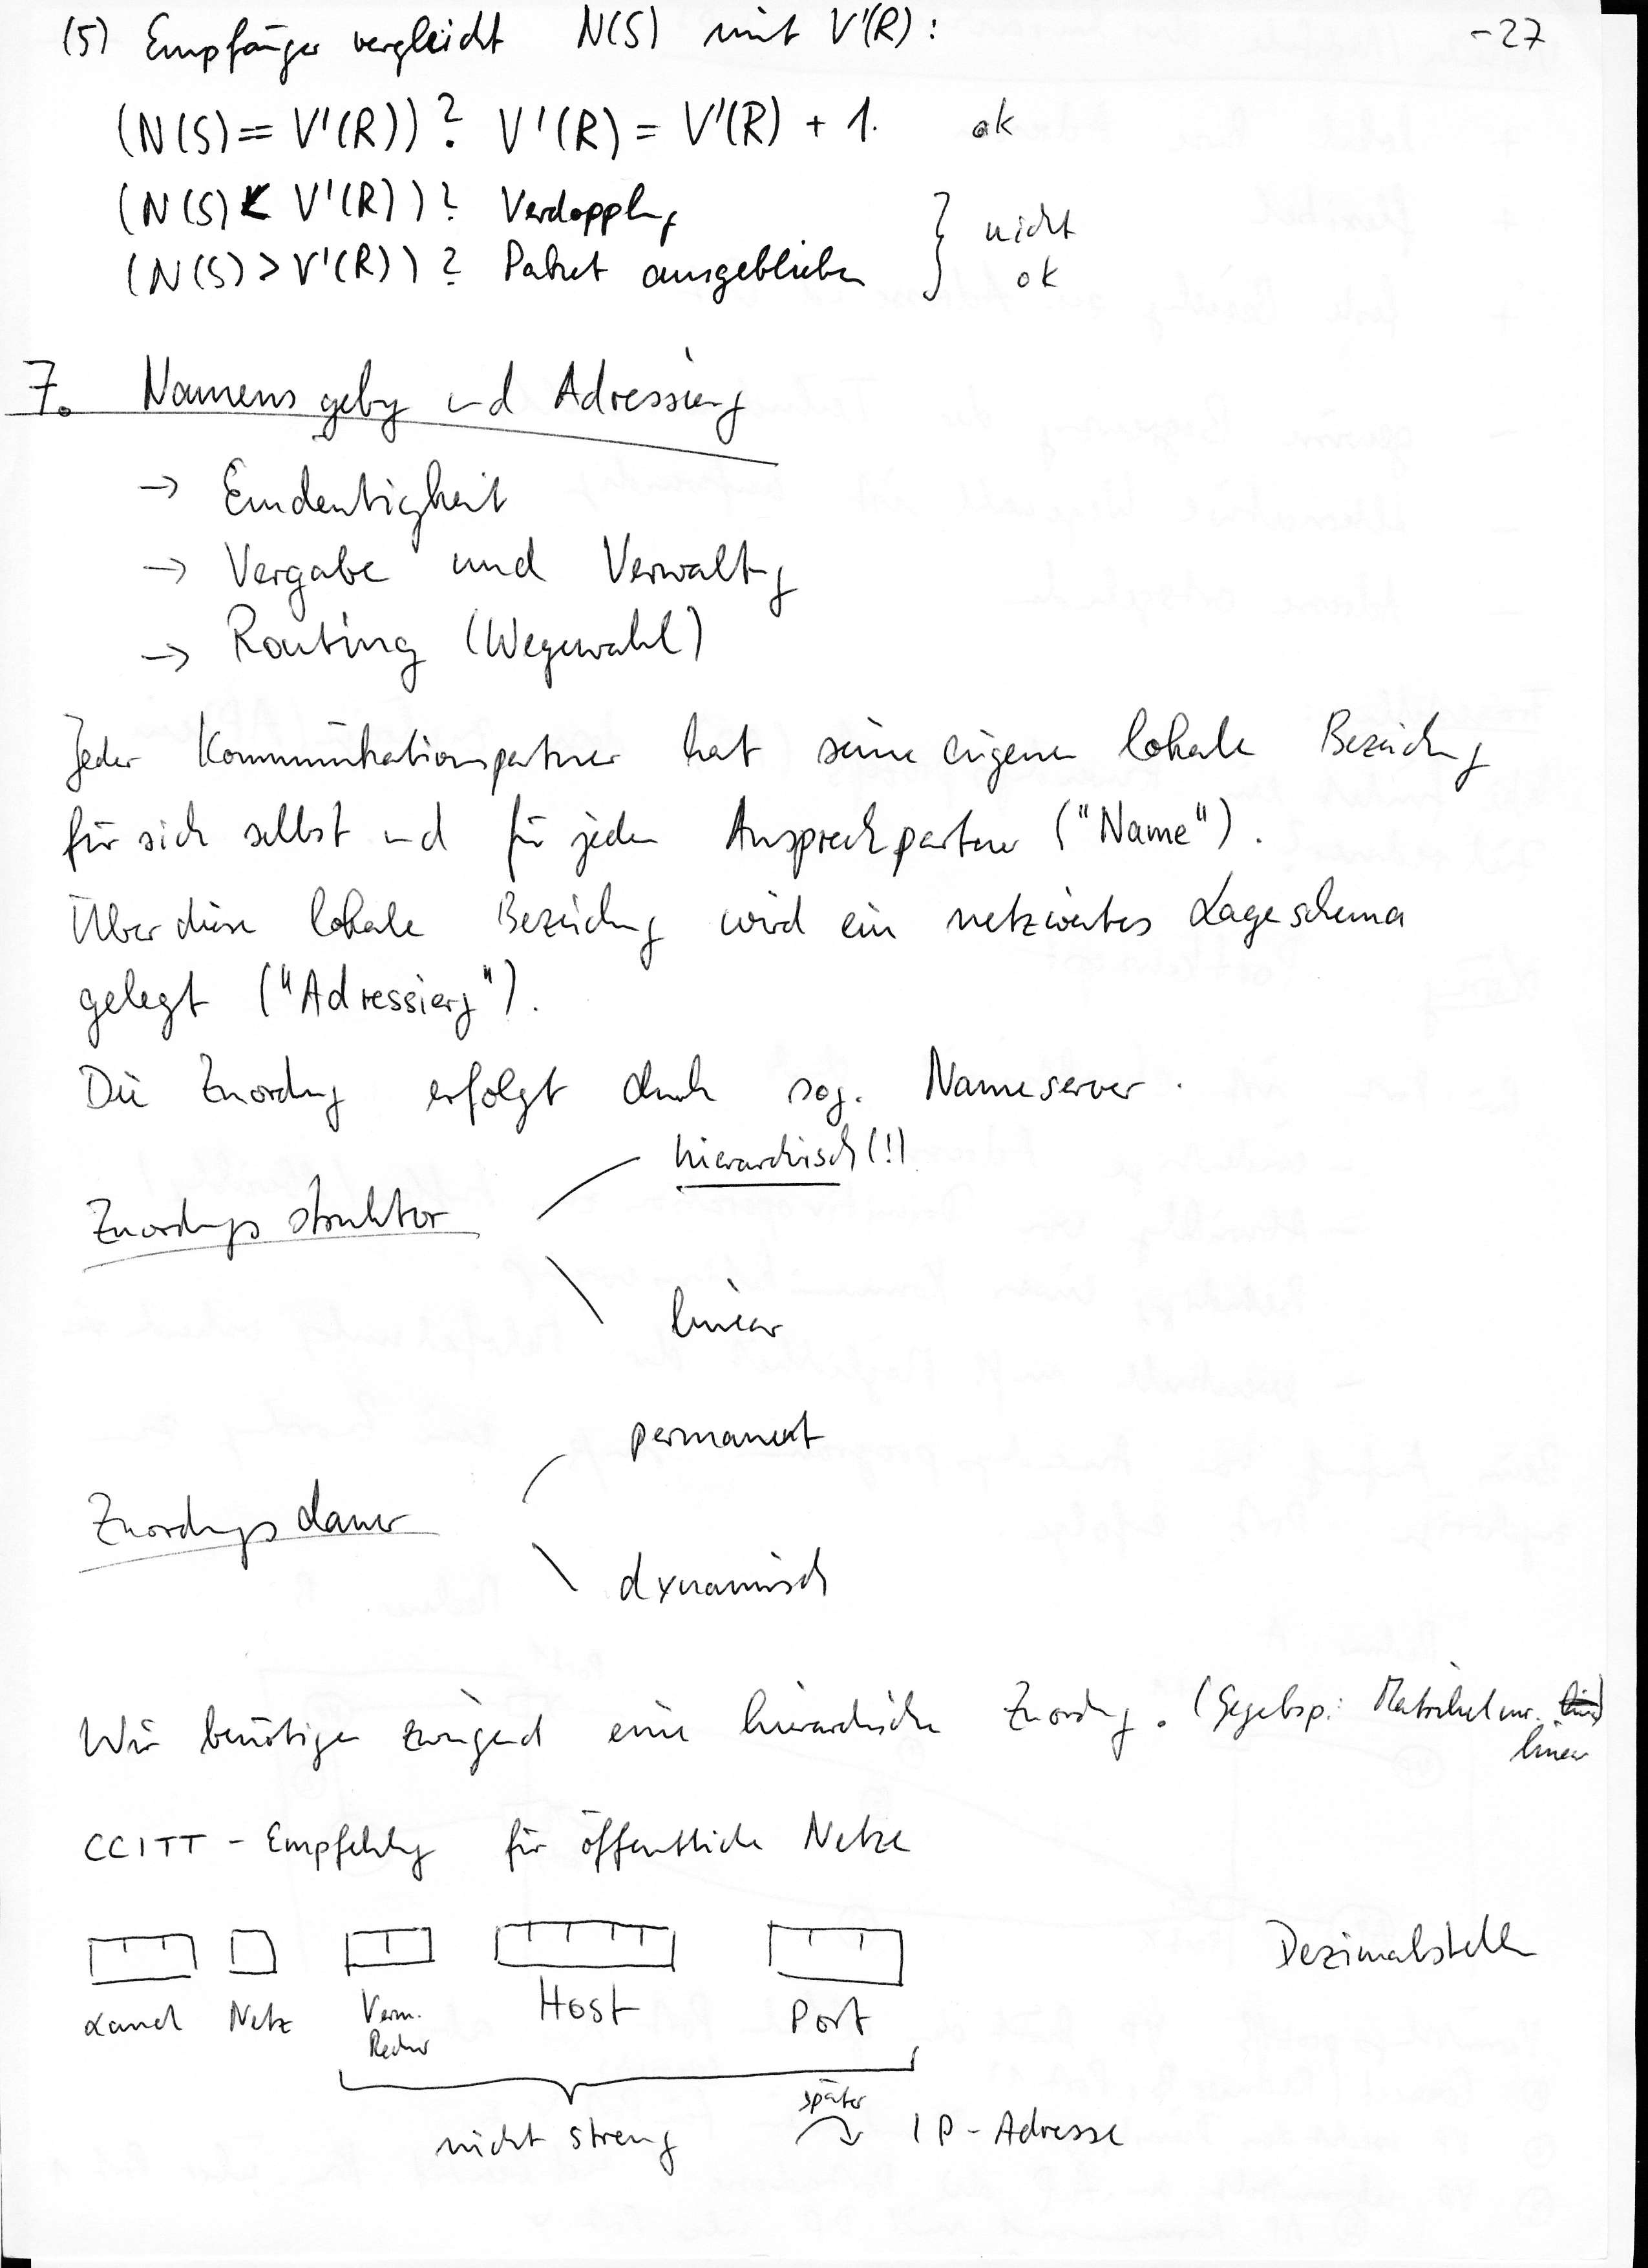 (5) Empfänger vergleicht N(S) mit V'(R): -27
(N(S) == V'(R))? V'(R) = V'(R) + 1. ok
(N(S) < V'(R))? Verdopplung
(N(S) > V'(R))? Paket ausgeblieben } nicht ok
7. Namensgebung und Adressierung
→ Eindeutigkeit
→ Vergabe und Verwaltung
→ Routing (Wegewahl)
Jeder Kommunikationspartner hat seine eigene lokale Bezeichnung
für sich selbst und für jeden Ansprechpartner ("Name").
Über diese lokale Bezeichnung wird ein netzweites Lageschema
gelegt ("Adressierung").
Die Zuordnung erfolgt durch sog. Nameserver.
hierarchisch (!)
Zuordnungsstruktur
linear
permanent
Zuordnungsdauer
dynamisch
Wir benötigen zwingend eine hierarchische Zuordnung. (Gegebsp.: Matrikelnr.
linear
CCITT - Empfehlung für öffentliche Netze
Dezimalstellen
Land Netz Verm. Rechner Host Port
nicht streng später IP-Adresse